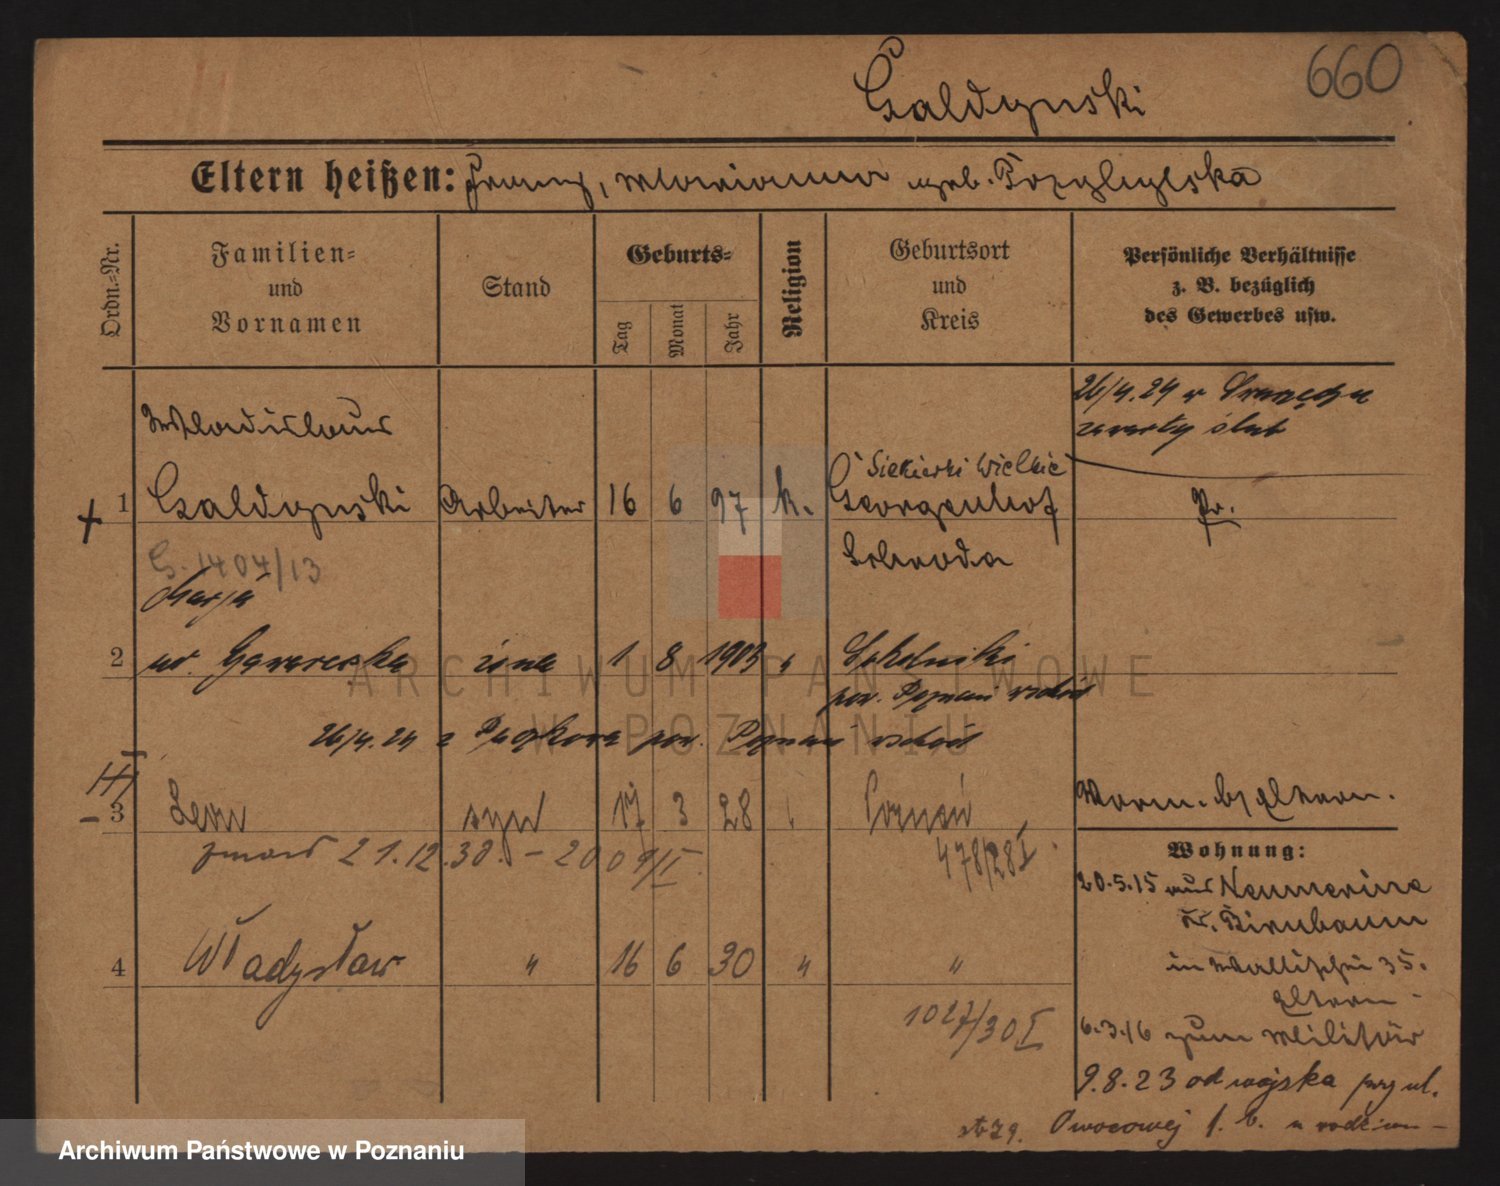 660
Galdynski
Eltern heißen: Franz, Marianna geb. Przybylska
Ordn.=Nr.
Familien=
und
Vornamen
Stand
Geburts=
Tag
Monat
Jahr
Religion
Geburtsort
und
Kreis
Persönliche Verhältnisse
z. B. bezüglich
des Gewerbes usw.
26/4.24 w
zawarty ślub
Wladislaus
Siekierki Wielkie
1 Galdynski Arbeiter 16 6 97 k. Georgenhof
Pr.
Schroda
G. 1404/13
Marja
2 ur. żona 1 8 1903 "
pow. Poznań wschód
26/4.24 z pow. Poznań wschód
3 Leon syn 17 3 28 Poznań
478/28 I
zmarł 21.12.30. - 2009/II.
Vorm. b/ Eltern.
Wohnung:
20.5.15 aus
Kr. Birnbaum
4 Władysław " 16 6 30 " "
in Wallischei 35.
Eltern -
1027/30 I
6.3.16 zum Militär
9.8.23 od wojska przy ul.
Owocowej 1. b. u rodziców -
ARCHIWUM PAŃSTWOWE
W POZNANIU
Archiwum Państwowe w Poznaniu